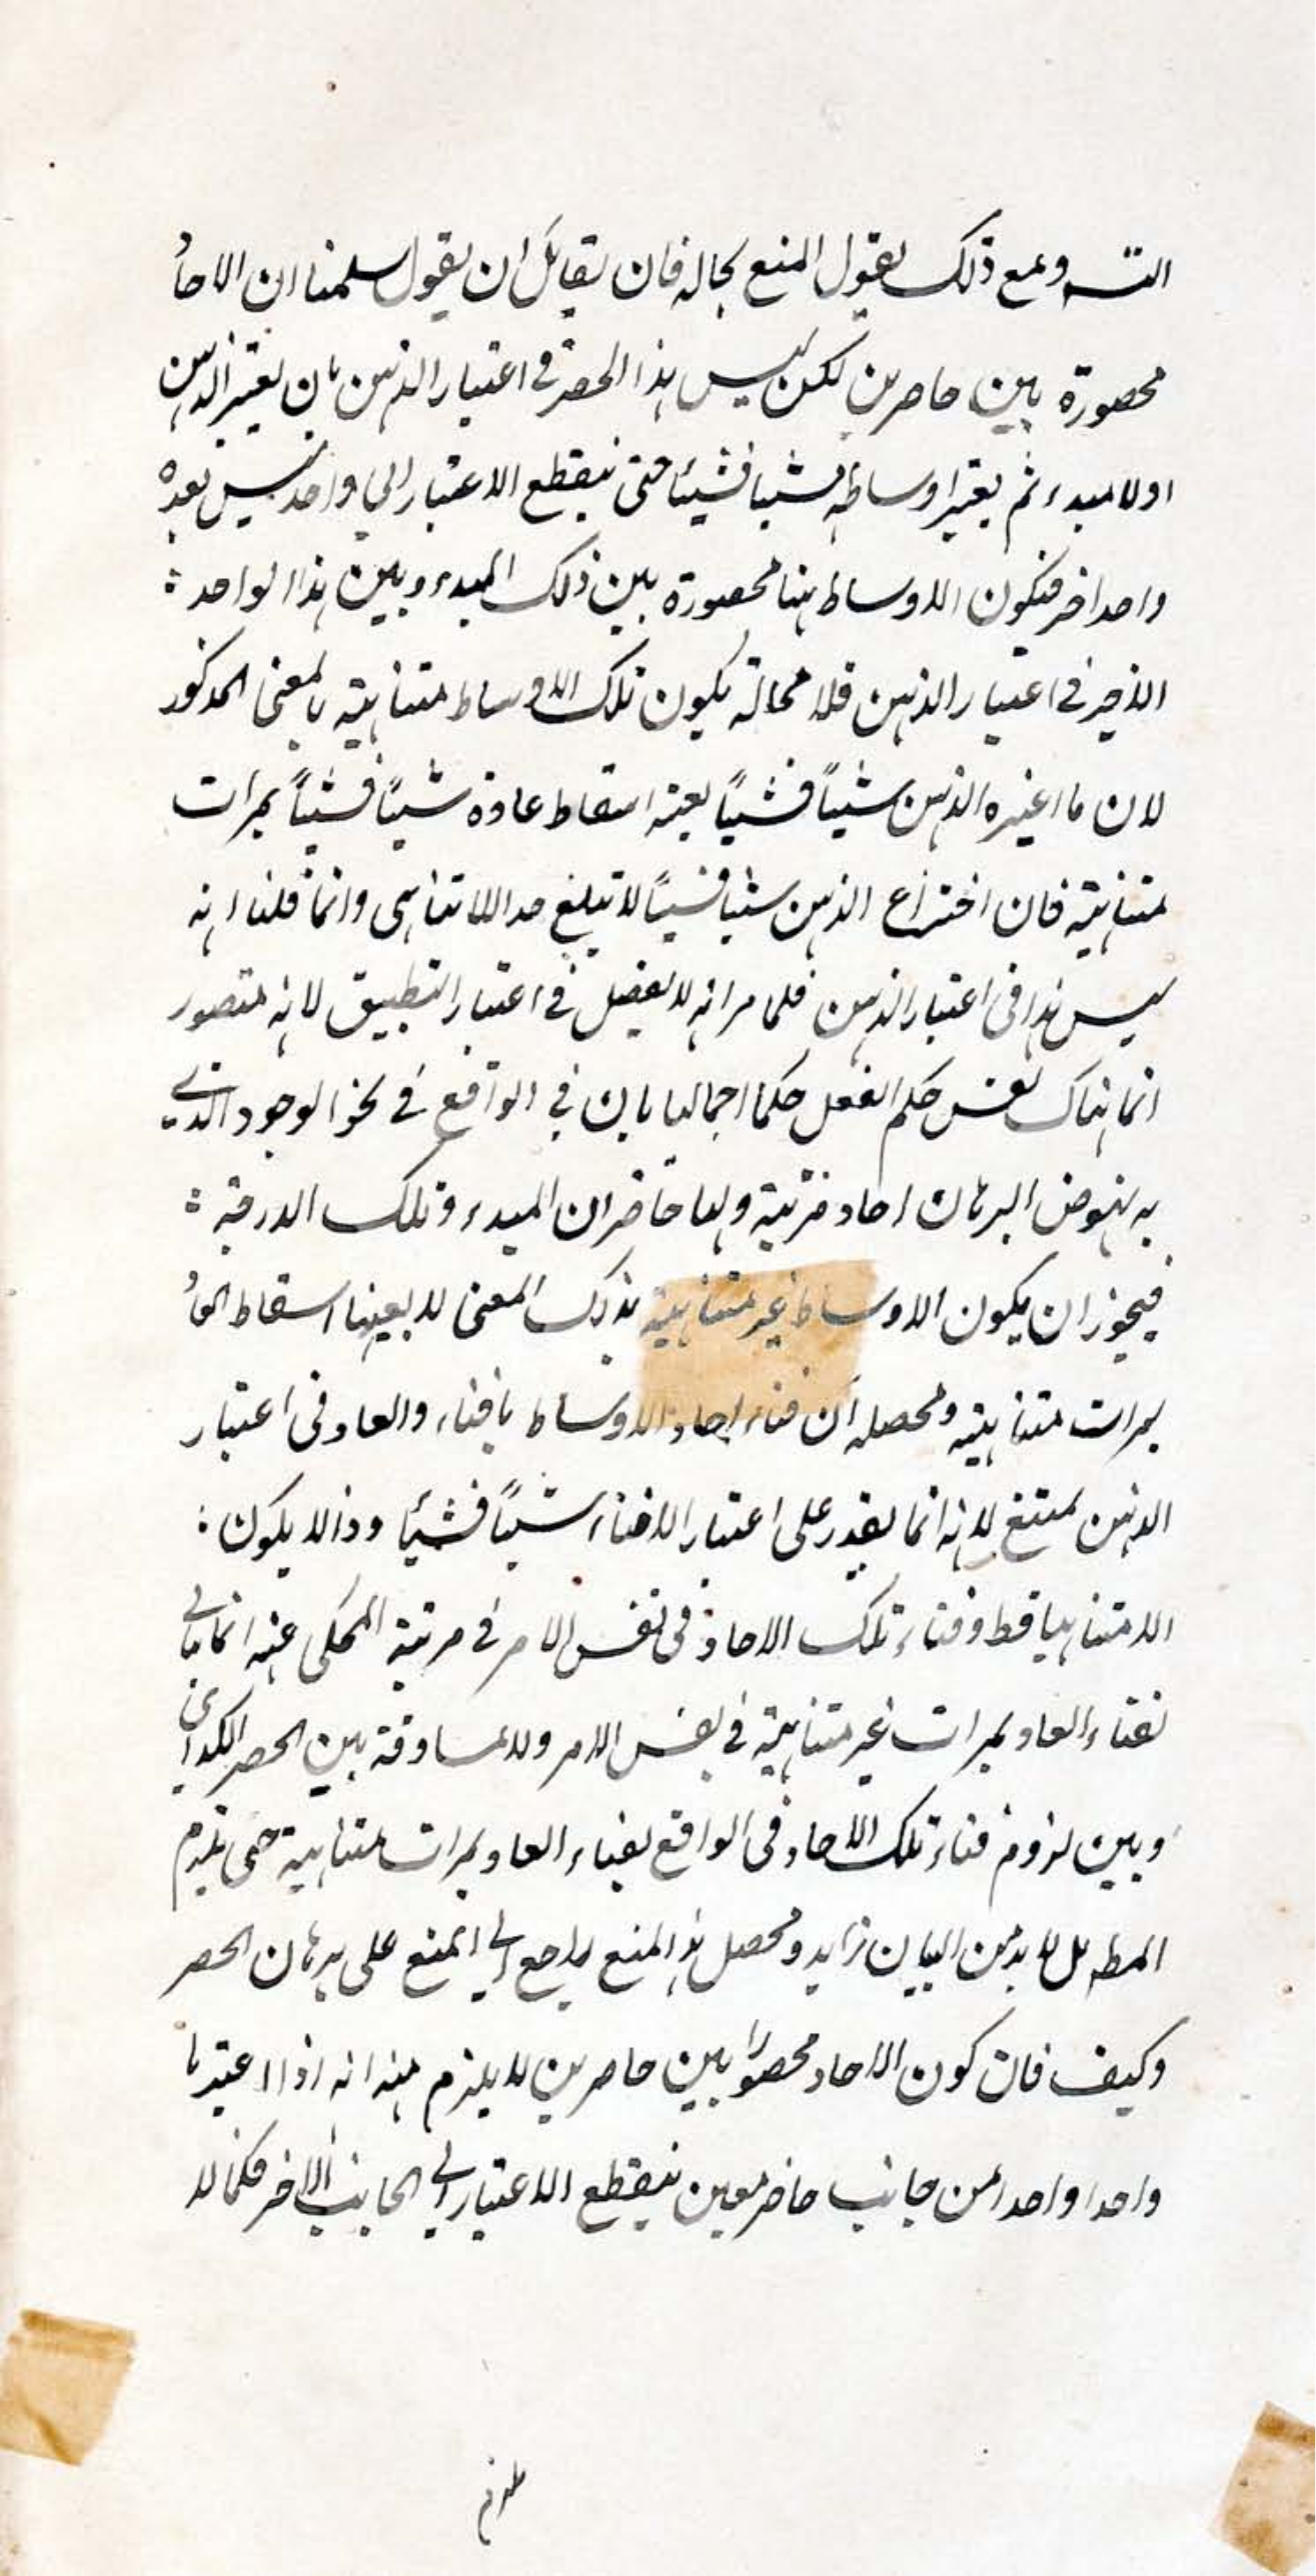 التسـ ومع ذلك يقول المنع بحاله فان لقائل ان يقول سلمنا ان الاحاد
محصورة بين حاصرين لكن ليس هذا الحصر في اعتبار الذهن بان يعتبر الذهن
اولا مبدء ثم يعتبر اوساطه شيئا فشيئا حتى ينقطع الاعتبار الى واحد ليس بعده
واحد اخر فتكون الاوساط ههنا محصورة بين ذلك المبدء وبين هذا الواحد
الاخير في اعتبار الذهن فلا محالة يكون تلك الاوساط متناهية بالمعنى المذكور
لان ما اعتبره الذهن شيئاً فشيئاً يعينه اسقاط عادة شيئاً فشيئاً بمرات
متناهية فان اختراع الذهن شيئا فشيئاً لا تبلغ حد اللاتناهى وانما قلنا انه
ليس هذا فى اعتبار الذهن فلما مر انه لا يفصل في اعتبار التطبيق لانه متصور
انما هناك نفس حكم العقل حكما اجماليا بان في الواقع في نحو الوجود الذي
به نهوض البرهان احاد مترتبة ولها حاصران المبدء وتلك الدرجة
فيجوز ان يكون الاوساط غير متناهية بذلك المعنى لا بعينها اسقاط العاد
بمرات متناهية ومحصله ان فناء احاد الاوساط بافناء والعاد فى اعتبار
الذهن ممتنع لانه انما يقدر على اعتبار الافناء شيئاً فشيئا وذا لا يكون
الا متناهيا قط وفناء تلك الاحاد فى نفس الامر في مرتبة المحكى عنه انما
بفناء العاد بمرات غير متناهية في نفس الامر ولا مساوقة بين الحصر
وبين لزوم فناء تلك الاحاد فى الواقع بفناء العاد بمرات متناهية حتى يلزم
المطـ بل لا بد من البيان زايد ومحصل هذا المنع راجع الى المنع على برهان الحصر
وكيف فان كون الاحاد محصورا بين حاصرين لا يلزم منه انه اذا اعتبرنا
واحدا واحدا من جانب حاصر معين ينقطع الاعتبار الى الجانب الاخر فكما لا